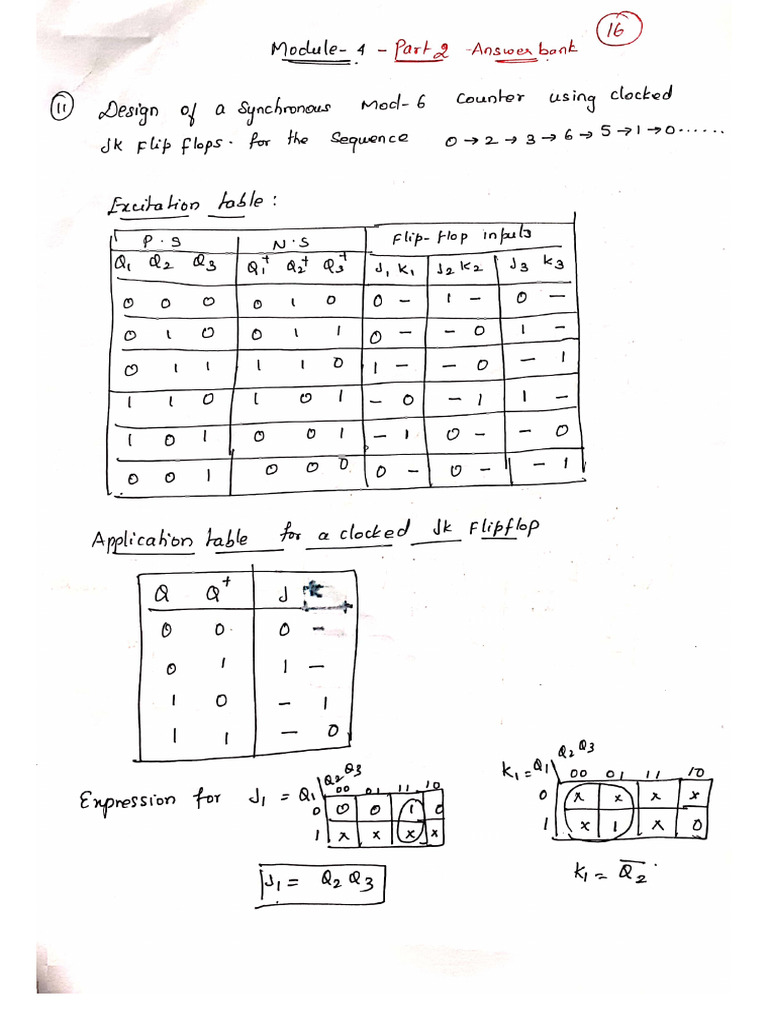 16
Module - 4 - Part 2 - Answer bank
11 Design of a Synchronous Mod-6 Counter using clocked
JK Flip flops. for the Sequence 0→2→3→6→5→1→0......
Excitation table:
P.S N.S Flip-flop inputs
Q1 Q2 Q3 Q1+ Q2+ Q3+ J1 K1 J2 K2 J3 K3
0 0 0 0 1 0 0 - 1 - 0 -
0 1 0 0 1 1 0 - - 0 1 -
0 1 1 1 1 0 1 - - 0 - 1
1 1 0 1 0 1 - 0 - 1 1 -
1 0 1 0 0 1 - 1 0 - - 0
0 0 1 0 0 0 0 - 0 - - 1
Application table for a clocked JK Flipflop
Q Q+ J K
0 0 0 -
0 1 1 -
1 0 - 1
1 1 - 0
Expression for J1 = Q1 \ Q2 Q3
00 01 11 10
0 0 0 1 0
1 x x x x
J1 = Q2 Q3
K1 = Q1 \ Q2 Q3
00 01 11 10
0 x x x x
1 x 1 x 0
K1 = Q̅2